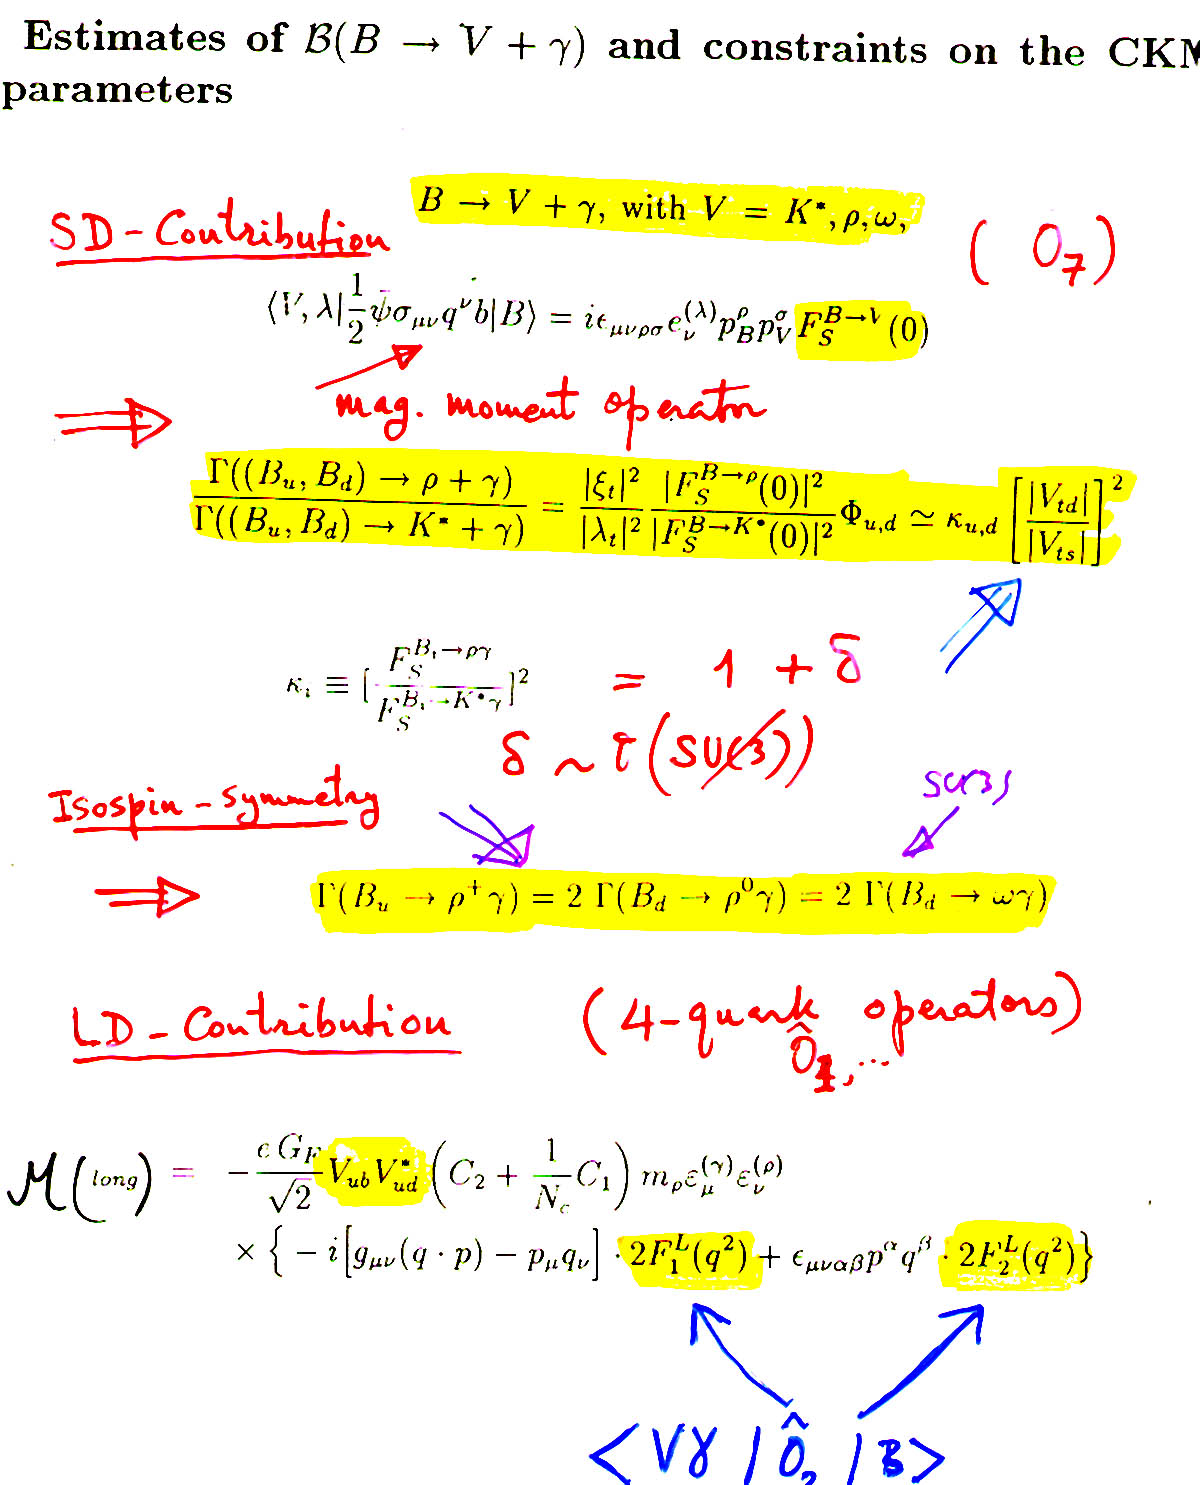 Estimates of ℬ(B → V + γ) and constraints on the CKM
parameters
B → V + γ, with V = K*, ρ, ω,
SD - Contribution ( O_7 )
⟨V, λ| 1/2 ψ̄ σ_{μν} q^ν b|B⟩ = iϵ_{μνρσ} e_ν^{(λ)} p_B^ρ p_V^σ F_S^{B→V}(0)
mag. moment operator
⇒
Γ((B_u, B_d) → ρ + γ) / Γ((B_u, B_d) → K* + γ) = |ξ_t|^2 / |λ_t|^2 |F_S^{B→ρ}(0)|^2 / |F_S^{B→K*}(0)|^2 Φ_{u,d} ≃ κ_{u,d} [ |V_{td}| / |V_{ts}| ]^2
κ_i ≡ [ F_S^{B_i→ργ} / F_S^{B_i→K*γ} ]^2 = 1 + δ
δ ~ (SU(3))
Isospin - symmetry SU(3)
⇒ Γ(B_u → ρ^+ γ) = 2 Γ(B_d → ρ^0 γ) = 2 Γ(B_d → ωγ)
LD - Contribution (4-quark operators)
Ô_1, ...
M(long) = − e G_F / √2 V_{ub} V_{ud}^* ( C_2 + 1/N_c C_1 ) m_ρ ε_μ^{(γ)} ε_ν^{(ρ)}
× { − i [ g_{μν}(q · p) − p_μ q_ν ] · 2F_1^L(q^2) + ϵ_{μναβ} p^α q^β · 2F_2^L(q^2) }
<Vγ | Ô_2 | B>